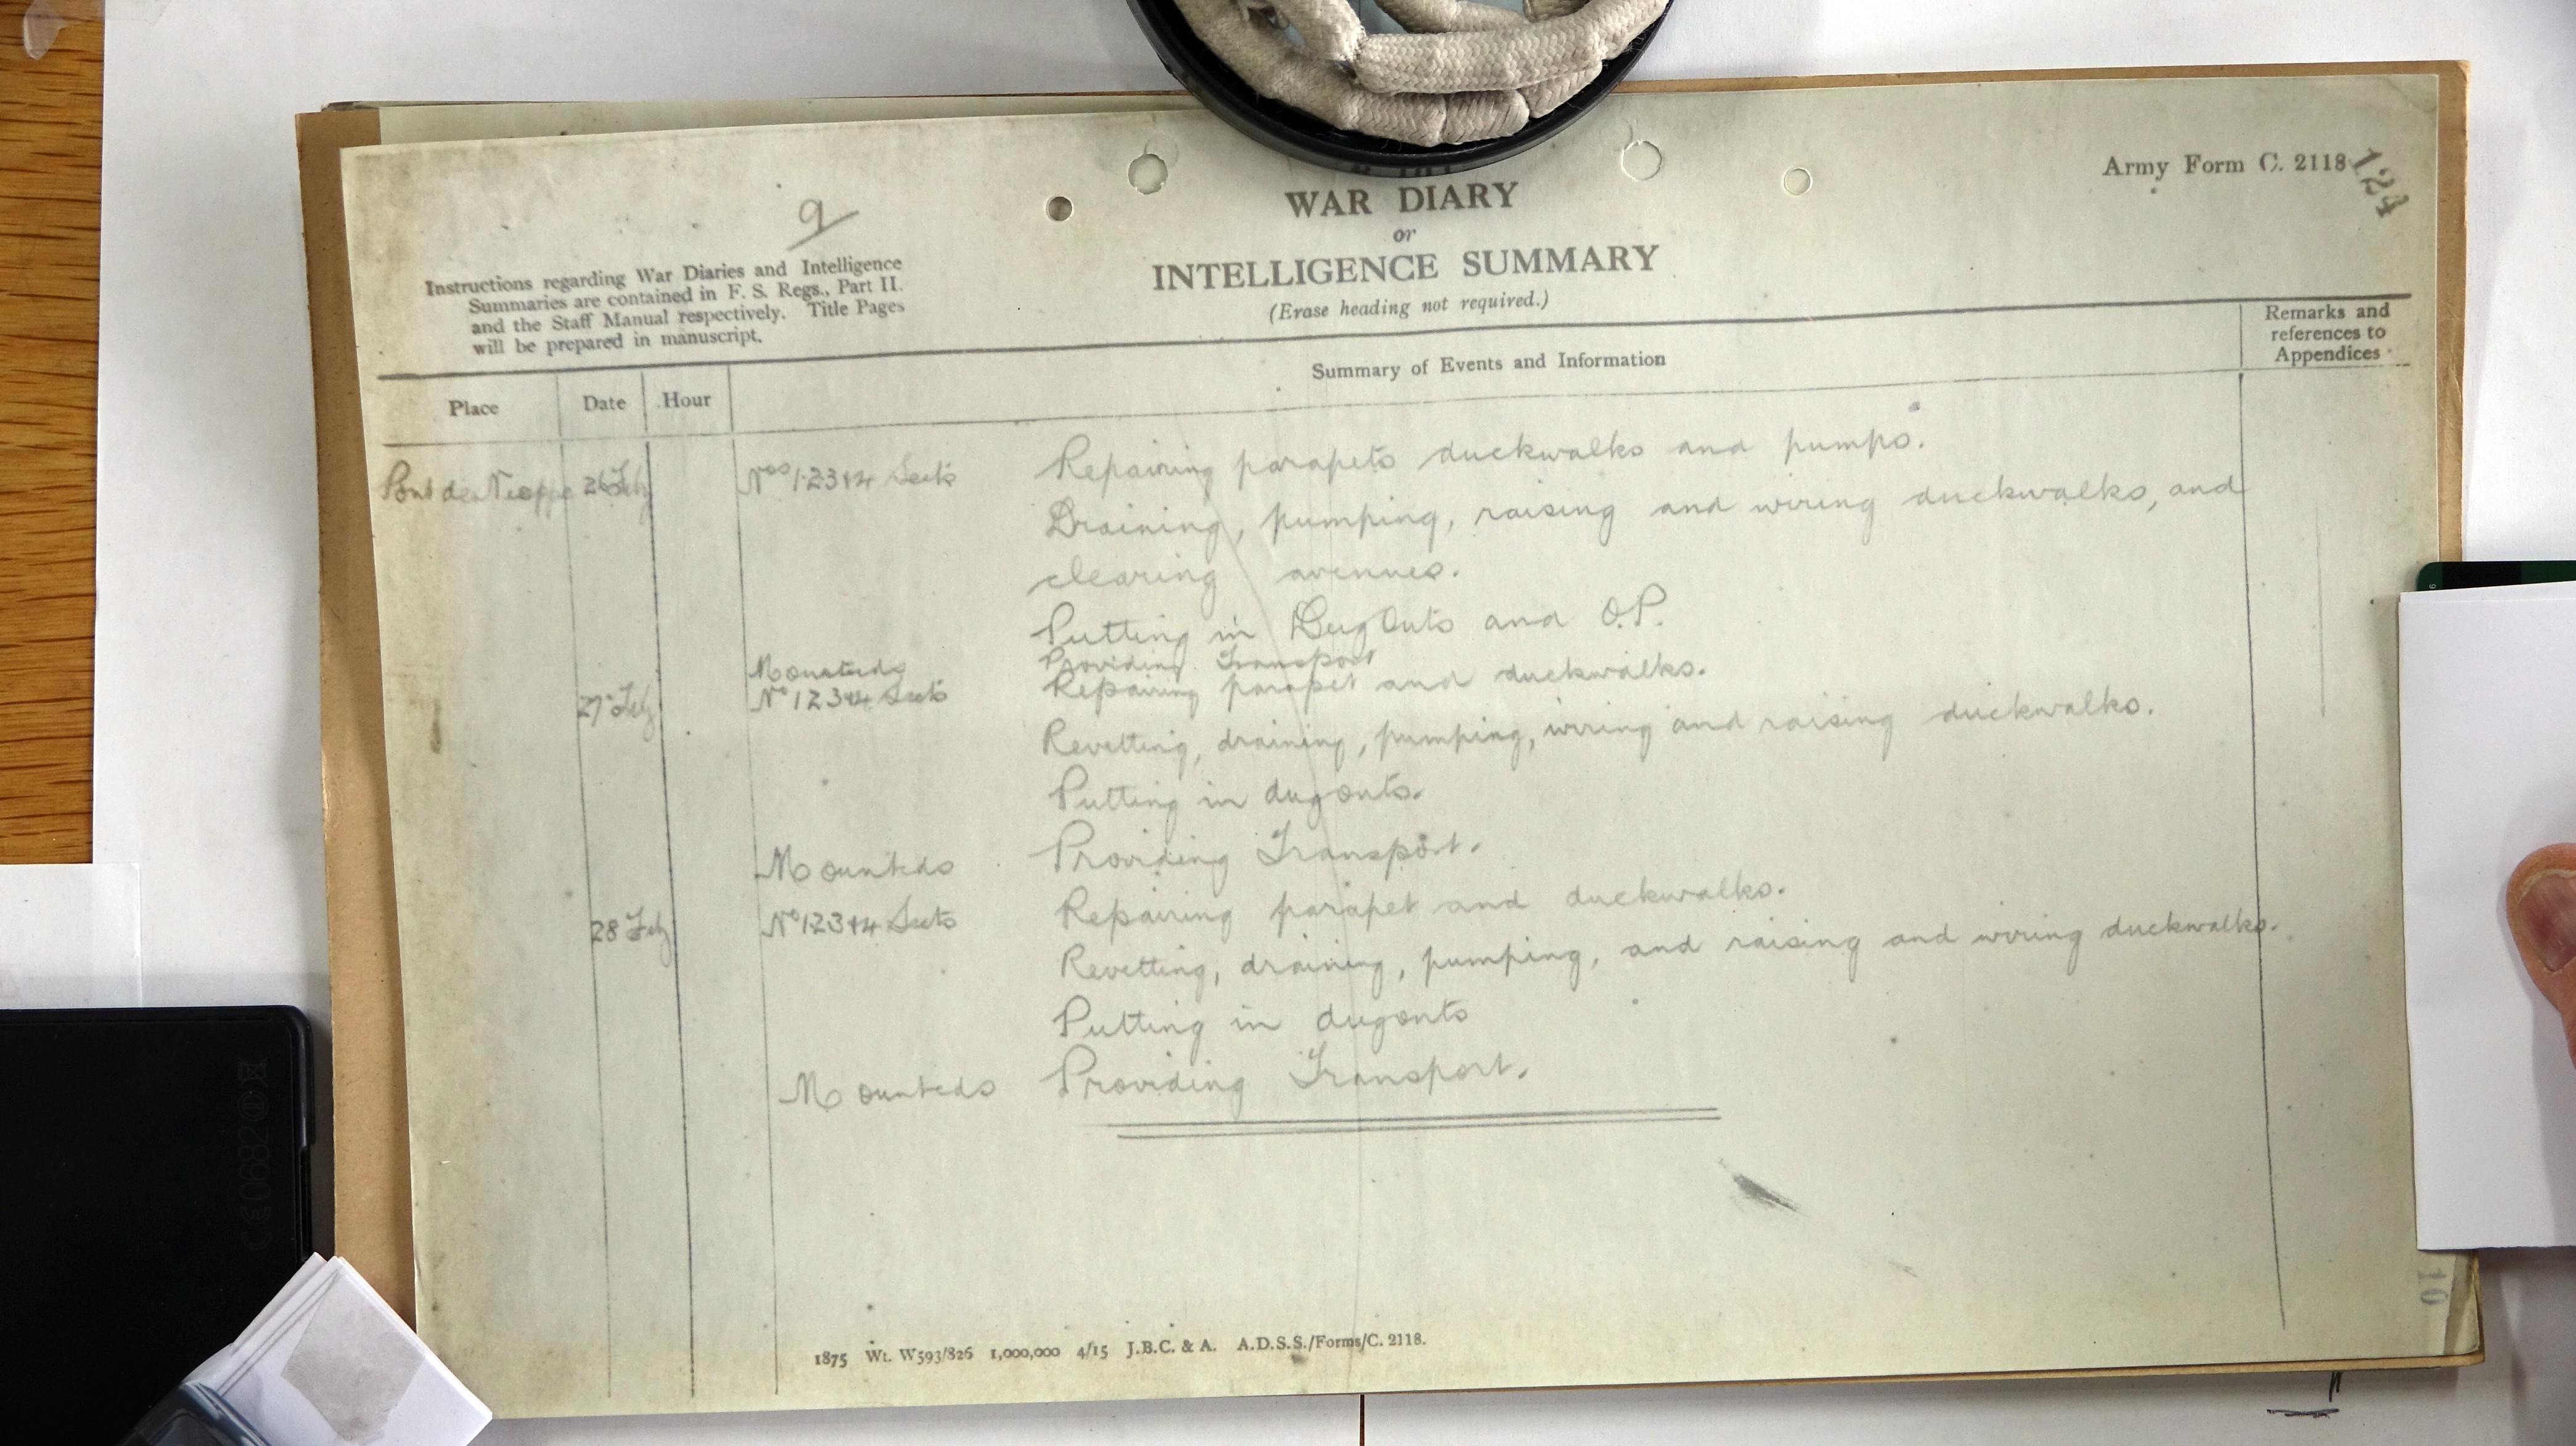 Army Form C. 2118
124
9
WAR DIARY
or
INTELLIGENCE SUMMARY
(Erase heading not required.)
Instructions regarding War Diaries and Intelligence
Summaries are contained in F. S. Regs., Part II.
and the Staff Manual respectively. Title Pages
will be prepared in manuscript.
Place Date Hour Summary of Events and Information
Remarks and
references to
Appendices
Pont de Nieppe 26 Feby Nos 1.2.3+4 Sects Repairing parapets duckwalks and pumps.
Draining, pumping, raising and wiring duckwalks, and
clearing avenues.
Putting in Dug Outs and O.P.
Mounteds Providing Transport
27 Feby No 1 2 3+4 Sects Repairing parapet and duckwalks.
Revetting, draining, pumping, wiring and raising duckwalks.
Putting in dugouts.
Mounteds Providing Transport.
28 Feby No 1.2.3+4 Sects Repairing parapet and duckwalks.
Revetting, draining, pumping, and raising and wiring duckwalks.
Putting in dugouts
Mounteds Providing Transport.
1875 Wt. W593/826 1,000,000 4/15 J.B.C. & A. A.D.S.S./Forms/C. 2118.
10